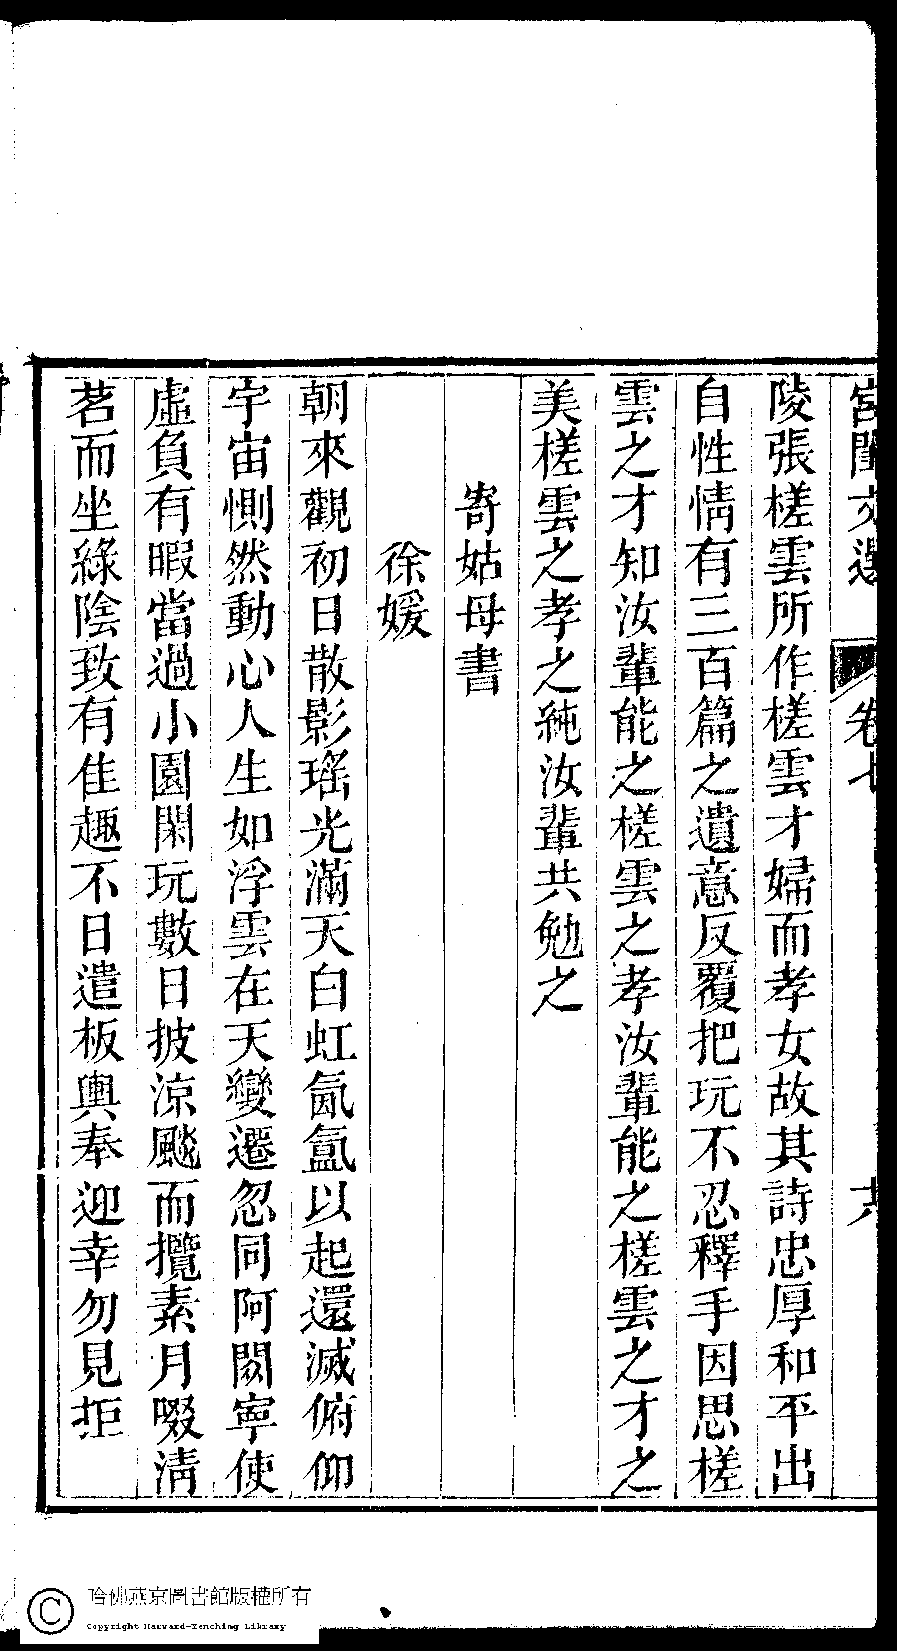 宮閨文選 卷七 十六
陵張槎雲所作槎雲才婦而孝女故其詩忠厚和平出
自性情有三百篇之遺意反覆把玩不忍釋手因思槎
雲之才知汝輩能之槎雲之孝汝輩能之槎雲之才之
美槎雲之孝之純汝輩共勉之
寄姑母書
徐媛
朝來觀初日散影瑤光滿天白虹氤氳以起還滅俯仰
宇宙惻然動心人生如浮雲在天變遷忽同阿閦寧使
虛負有暇當過小園閑玩數日披涼颸而攬素月啜淸
茗而坐綠陰致有佳趣不日遣板輿奉迎幸勿見拒
哈佛燕京圖書館版權所有
Copyright Harvard-Yenching Library